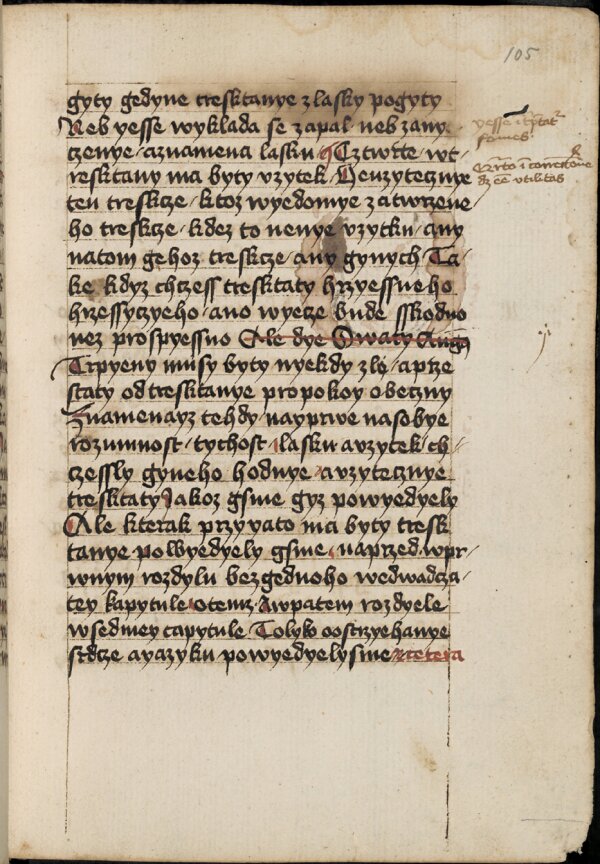 105
gyty gedyne tresktanye z lasky pogyty
Neb yesse wyklada se zapal neb zany
czenye a znamena lasku Cztwrte wt
resktany ma byty vzytek Neuzytecznye
ten treskcze ktoz wyedomye zatwrzene
ho treskcze kdez to nenye vzytku any
natom gehoz treskcze any gynych Ta
ke kdyz chczess tresktaty hrzyessneho
hrzessyczyeho ano wyecze bude sskodno
nez prospyessno Ale dye Swaty Aug
Trpyeny musy byty nyekdy zle a prze
staty od tresktanye pro pokoy obeczny
Znamenayz tehdy nayprwe na sobye
rozumnost tychost lasku a vzytek ch
czessly gyneho hodnye a vzytecznye
tresktaty Jakoz gsme gyz powyedyely
Ale kterak przywato ma byty tresk
tanye powyedyely gsme naprzed wpr
wnym rozdylu bezgednoho wedwadcza
tey kapytule otemz A wpatem rozdyele
w sedmey capytule Tolyko o ostrzyehanye
srdcze a yazyku powyedyely sme etcetera